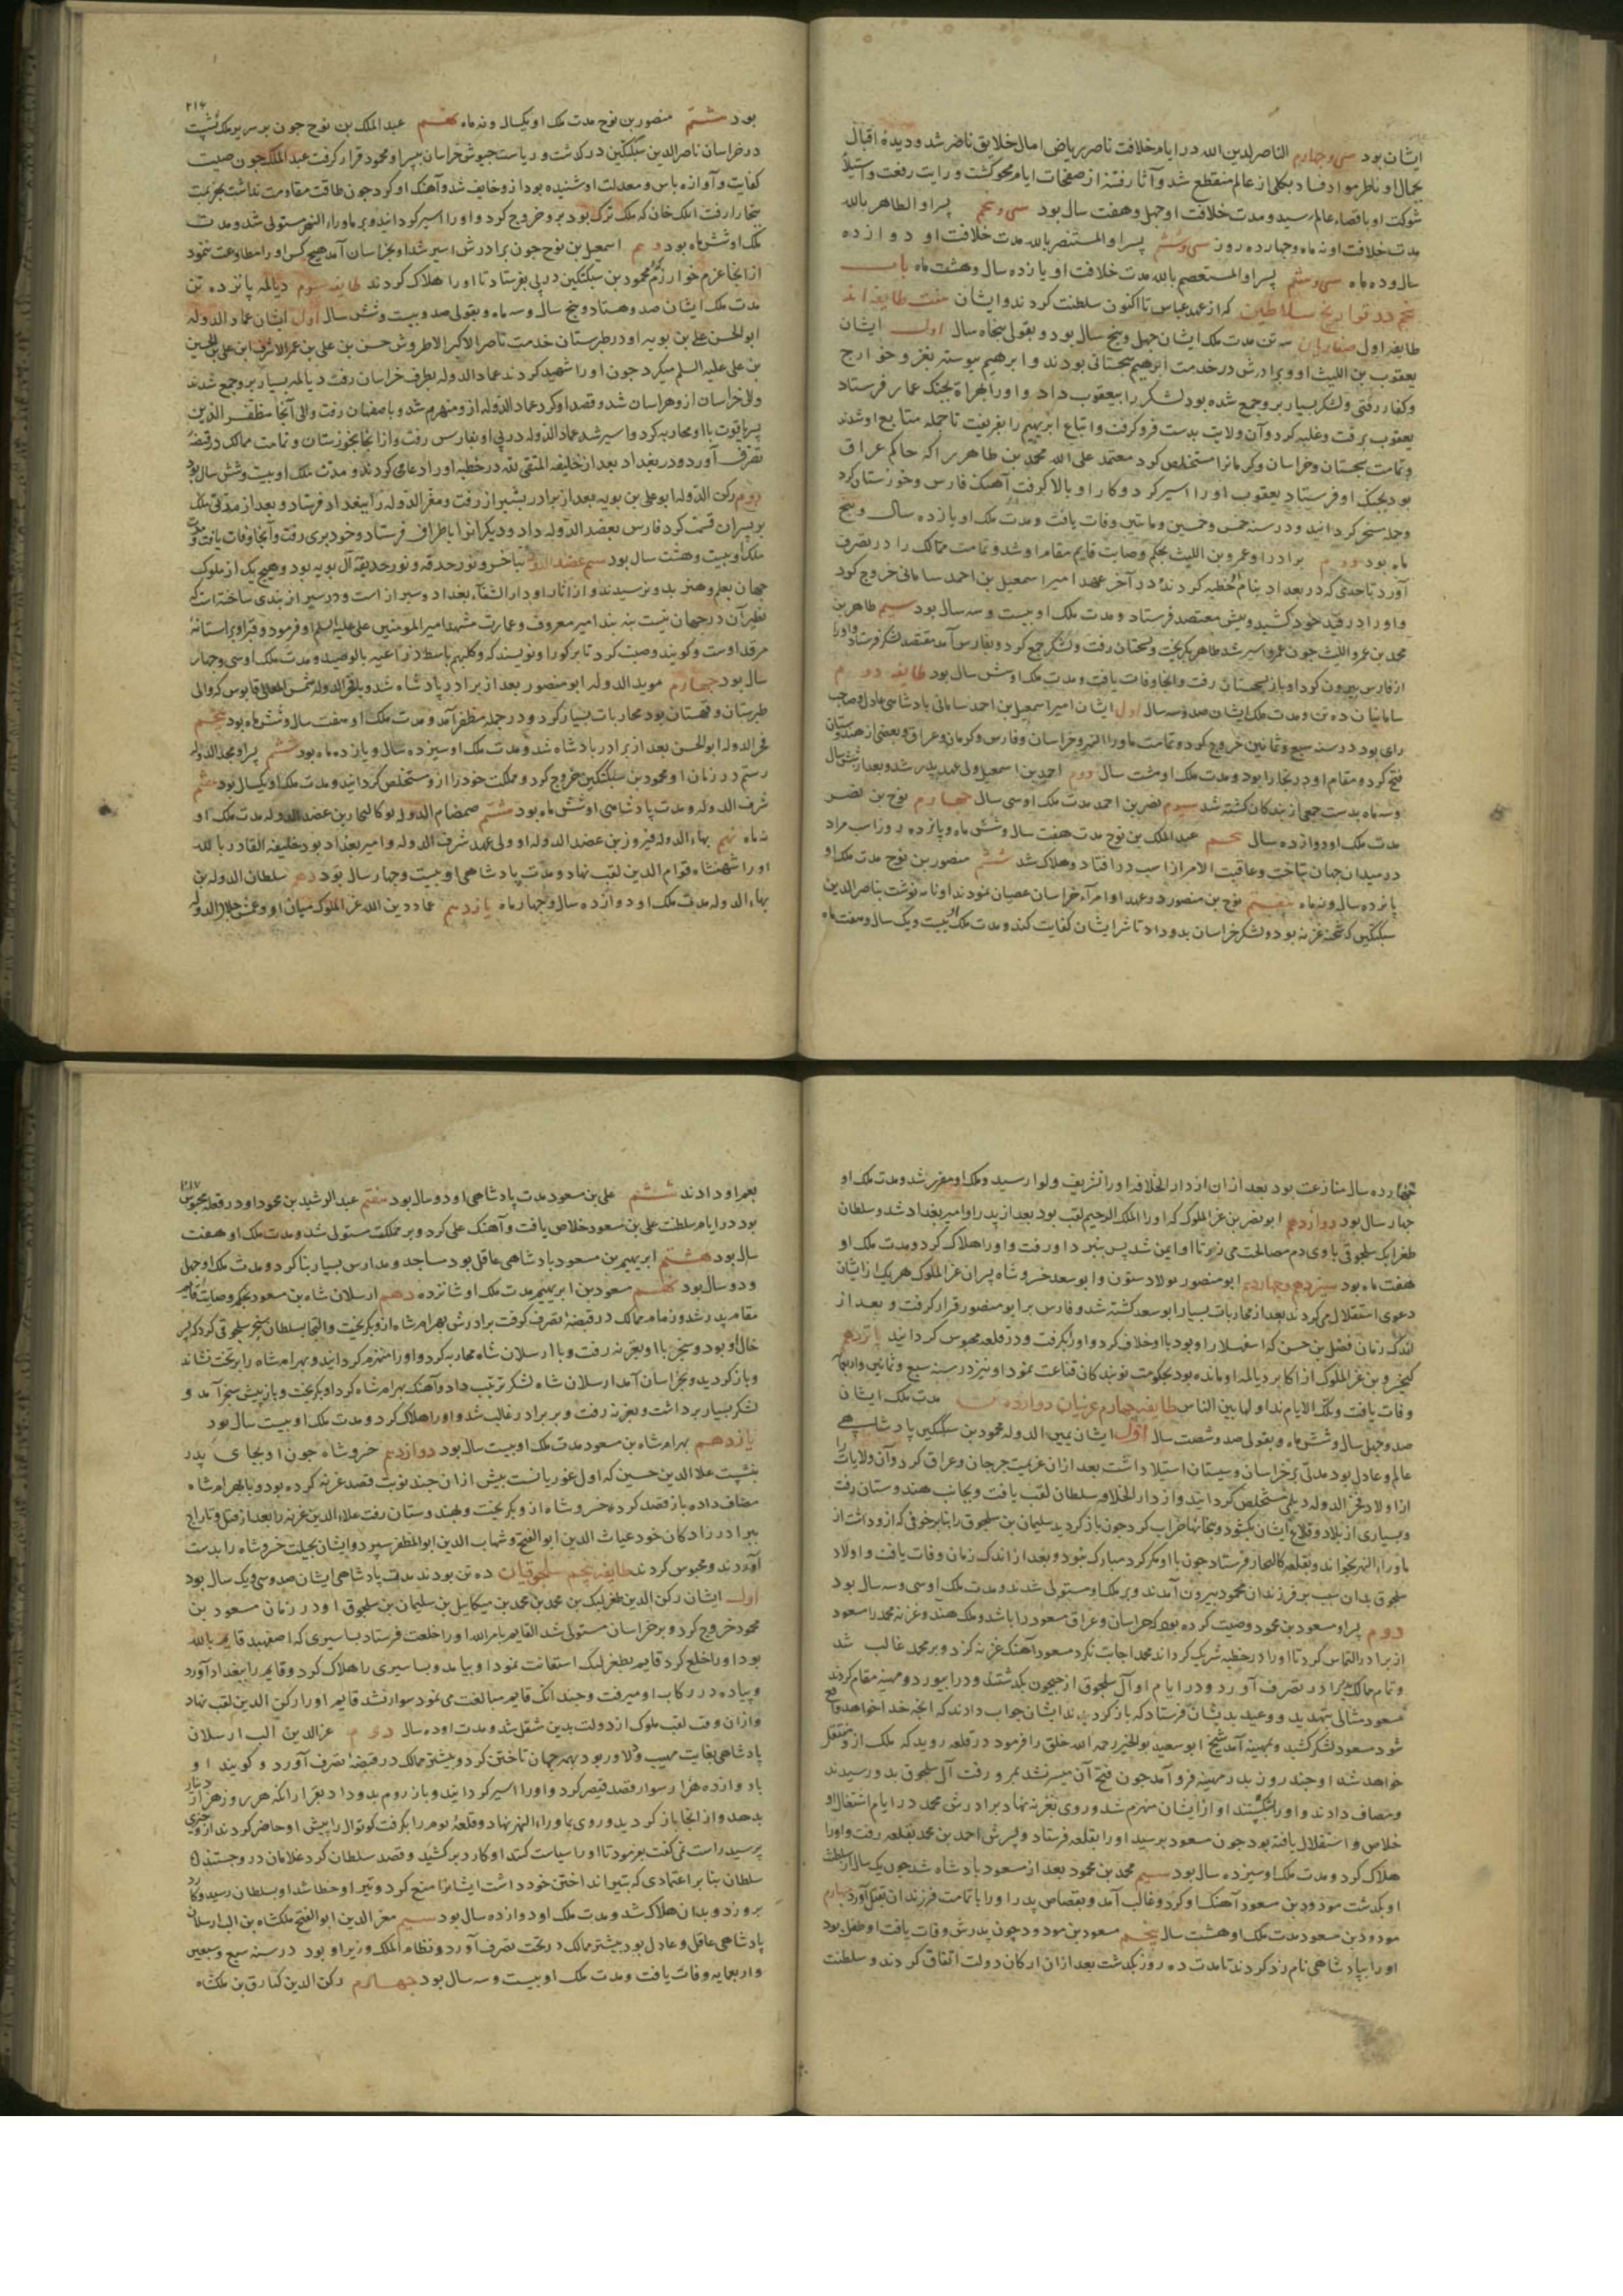 ایشان بود سی و چهارم الناصر لدین الله در ایام خلافت ناصر ریاض امال خلایق ناضر شد و دیده اقبال
بجمال او ناظر مواد فساد بکلی از عالم منقطع شد و آثار فتنه از صفحات ایام محو کشت و رایت رفعت و استیلا
شوکت او باقصاء عالم رسید و مدت خلافت او چهل و هفت سال بود سی و پنجم پسر او الظاهر بالله
مدت خلافت او نه ماه و چهارده روز سی و ششم پسر او المستنصر بالله مدت خلافت او دوازده
سال و ده ماه پسر او المستعصم بالله مدت خلافت او یازده سال و هشت ماه باب
پنجم در تواریخ سلاطین که از عهد عباس تا اکنون سلطنت کردند و ایشان هفت طایفه اند
طایفه اول صفاریان سه تن مدت ملک ایشان چهل و پنج سال بود و بقولی پنجاه سال اول ایشان
یعقوب بن اللیث او و برادرش در خدمت ابرهیم سجستانی بودند و ابرهیم پیوسته بغزو خوارج
و کفار رفتی و لشکر بسیار برو جمع شده بود لشکر را بیعقوب داد و او را بهراة بجنک عمار فرستاد
یعقوب برفت و غلبه کرد و آن ولایت بدست فرو کرفت و اتباع ابرهیم را بفریفت تا جمله متابع او شدند
و تمامت سجستان و خراسان و کرمانرا مستخلص کرد معتمد علی الله محمد بن طاهر را که حاکم عراق
بود بجنک او فرستاد یعقوب او را اسیر کرد و کار او بالا کرفت آهنک فارس و خوزستان کرد
و جمله مسخر کردانید و در سنه خمس و خمسین و مایتین وفات یافت و مدت ملک او یازده سال و پنج
ماه بود دوم برادر او عمرو بن اللیث بحکم وصایت قایم مقام او شد و تمامت ممالک را در تصرف
آورد تا حدی که در بغداد بنام او خطبه کردند و در آخر عهد امیر اسمعیل بن احمد سامانی خروج کرد
و او را در قید خود کشید و پیش معتضد فرستاد و مدت ملک او بیست و سه سال بود سیم طاهر بن
محمد بن عمرو اللیث چون عمرو اسیر شد طاهر بکریخت و بسجستان رفت و لشکر جمع کرد و بفارس آمد معتضد لشکر فرستاد و او را
از فارس بیرون کرد او باز بسجستان رفت و انجا وفات یافت و مدت ملک او شش سال بود طایفه دوم
سامانیان ده تن و مدت ملک ایشان صد و سه سال اول ایشان امیر اسمعیل بن احمد سامانی پادشاهی عادل و صاحب
رای بود در سنه سبع و ثمانین خروج کرد و تمامت ماوراالنهر و خراسان و فارس و کرمان و عراق و بعضی از هندوستان
فتح کرد و مقام او در بخارا بود و مدت ملک او هشت سال دوم احمد بن اسمعیل ولی عهد پدر شد و بعد از شش سال
و سه ماه بدست جمعی از بندکان کشته شد سیوم نصر بن احمد مدت ملک او سی سال چهارم نوح بن نصر
مدت ملک او دوازده سال پنجم عبد الملک بن نوح مدت هفت سال و شش ماه و پانزده روز اسب مراد
در میدان جهان بتاخت و عاقبت الامر از اسب درافتاد و هلاک شد ششم منصور بن نوح مدت ملک او
پانزده سال و نه ماه هفتم نوح بن منصور در عهد او امراء خراسان عصیان نمودند او نامه نوشت بناصر الدین
سبکتکین که شحنه غزنه بود و لشکر خراسان بدو داد تا شر ایشان کفایت کند و مدت ملک او بیست و یک سال و هفت ماه
۲۱۶
بود هشتم منصور بن نوح مدت ملک او یکسال و نه ماه نهم عبد الملک بن نوح چون بر سریر ملک نشست
در خراسان ناصر الدین سبکتکین درکذشت و ریاست جیوش خراسان بپسر او محمود قرار کرفت عبد الملک چون صیت
کفایت و آوازه باس و معدلت او شنیده بود ازو خایف شد و آهنک او کرد چون طاقت مقاومت نداشت بهزیمت
ببخارا رفت ایلک خان که ملک ترک بود برو خروج کرد و او را اسیر کردانید و بر ماوراء النهر مستولی شد و مدت
ملک او شش ماه بود دهم اسمعیل بن نوح چون برادرش اسیر شد او بخراسان آمد هیچ کس او را مطاوعت ننمود
از انجا عزم خوارزم کرد محمود بن سبکتکین در پی بفرستاد تا او را هلاک کردند طایفه سیوم دیالمه پانزده تن
مدت ملک ایشان صد و هشتاد و پنج سال و سه ماه و بقولی صد و بیست و شش سال اول ایشان عماد الدوله
ابو الحسن علی بن بویه او در طبرستان خدمت ناصر الاکبر الاطروش حسن بن علی بن عمر الاشرف ابن علی بن الحسین
بن علی علیه السلم میکرد چون او را شهید کردند عماد الدوله بطرف خراسان رفت دیالمه بسیار برو جمع شدند
والی خراسان ازو هراسان شد و قصد او کرد عماد الدوله ازو منهزم شد و باصفهان رفت والی آنجا مظفر الدین
پسر یاقوت با او محاربه کرد و اسیر شد عماد الدوله در پی او بفارس رفت و از انجا بخوزستان و تمامت ممالک در قبضه
تصرف آورد و در بغداد بعد از خلیفه المتقی لله در خطبه او را دعا می کردند و مدت ملک او بیست و شش سال بود
دوم رکن الدوله ابو علی بن بویه بعد از برادر بشیراز رفت و معز الدوله را ببغداد فرستاد و بعد از مدتی ملک
بر پسران قسمت کرد فارس بعضد الدوله داد و دیکرانرا باطراف فرستاد و خود بری رفت و آنجا وفات یافت و مدت
ملک او بیست و هفت سال بود سیم عضد الدوله فناخسرو نور حدقه و نور حدیقه آل بویه بود و هیچ یک از ملوک
جهان بعلم و هنر بدو نرسیدند و از آثار او دار الشفاء بغداد و شیراز است و در شیراز بندی ساخته است که
نظیر آن در جهان نیست بند امیر معروف و عمارت مشهد امیر المومنین علی علیه السلم او فرمود و قبر او بر استانهٔ
مرقد اوست و کویند وصیت کرد تا بر کور او نویسند که و کلبهم باسط ذراعیه بالوصید و مدت ملک او سی و چهار
سال بود چهارم موید الدوله ابو منصور بعد از برادر پادشاه شد و با فخر الدوله و شمس المعالی قابوس که والی
طبرستان و قهستان بود محاربات بسیار کرد و در جمله مظفر آمد و مدت ملک او هفت سال و شش ماه بود پنجم
فخر الدوله ابو الحسن بعد از برادر پادشاه شد و مدت ملک او سیزده سال و یازده ماه بود ششم پسر او مجد الدوله
رستم در زمان او محمود بن سبکتکین خروج کرد و مملکت خود را ازو مستخلص کردانید و مدت ملک او یکسال بود هفتم
شرف الدوله و مدت پادشاهی او شش ماه بود هشتم صمصام الدوله ابو کالنجار بن عضد الدوله مدت ملک او
نه ماه نهم بهاء الدوله فیروز بن عضد الدوله او ولی عهد شرف الدوله و امیر بغداد بود خلیفه القادر بالله
او را شهنشاه قوام الدین لقب نهاد و مدت پادشاهی او بیست و چهار سال بود دهم سلطان الدوله بن
بهاء الدوله مدت ملک او دوازده سال و چهار ماه یازدهم عماد دین الله عز الملوک میان او و عمش جلال الدوله
چهارده سال منازعت بود بعد از ان از دار الخلافه او را تشریف و لوا رسید و ملک او مقرر شد و مدت ملک او
چهار سال بود دوازدهم ابو نصر بن عز الملوک که او را الملک الرحیم لقب بود بعد از پدر او امیر بغداد شد و سلطان
طغرلبک سلجوقی با وی دم مصالحت می زد تا او ایمن شد پس بنبرد او رفت و او را هلاک کرد و مدت ملک او
هفت ماه بود سیزدهم و چهاردهم ابو منصور بولاد ستون و ابو سعد خسرو شاه پسران عز الملوک هر یک از ایشان
دعوی استقلال می کردند بعد از محاربات بسیار ابو سعد کشته شد و فارس بر ابو منصور قرار کرفت و بعد از
اندک زمان فضل بن حسن که اسفهسلار او بود با او خلاف کرد و او را بکرفت و در قلعه محبوس کردانید پانزدهم
کیخسرو بن عز الملوک از اکابر دیالمه او مانده بود بحکومت نوبندکان قناعت نمود او نیز در سنه سبع و ثمانین و اربعمایه
وفات یافت و تلک الایام نداولها بین الناس طایفه چهارم غزنیان دوازده تن مدت ملک ایشان
صد و چهل سال و شش ماه و بقولی صد و شصت سال اول ایشان یمین الدوله محمود بن سبکتکین پادشاهی
عالم و عادل بود مدتی بر خراسان و سیستان استیلا داشت بعد از ان عزیمت جرجان و عراق کرد و آن ولایات را
از اولاد فخر الدوله دیلمی مستخلص کردانید و از دار الخلافه سلطان لقب یافت و بجانب هندوستان رفت
و بسیاری از بلاد و قلاع ایشان بکشود و بتخانها خراب کرد چون باز کردید سلیمان بن سلجوق را بنابر خوفی که ازو داشت از
ماوراء النهر بخواند و بقلعه کالنجار فرستاد چون با او مکر کرد مبارک نبود و بعد از اندک زمان وفات یافت و اولاد
سلجوق بدان سبب بر فرزندان محمود بیرون آمدند و بر ملک او مستولی شدند و مدت ملک او سی و سه سال بود
دوم پسر او مسعود بن محمود وصیت کرده بود که خراسان و عراق مسعود را باشد و ملک هند و غزنه محمد را مسعود
از برادر التماس کرد تا او را در خطبه شریک کرداند محمد اجابت نکرد مسعود آهنک غزنه کرد و بر محمد غالب شد
و تمام ممالک پدر را در تصرف آورد و در ایام او آل سلجوق از جیحون بکذشتند و در ابیورد و مهینه مقام کردند
مسعود مثالی بتهدید و وعید بدیشان فرستاد که باز کردید ایشان جواب دادند که انچه خدا خواهد واقع
شود مسعود لشکر کشید و بمهینه آمد شیخ ابو سعید بو الخیر رحمه الله خلق را فرمود در قلعه روید که ملک ازو منتقل
خواهد شد او چند روز بدر مهینه فرو آمد چون فتح آن میسر نشد بمرو رفت آل سلجوق بدو رسیدند
و مصاف دادند و او را بشکستند او از ایشان منهزم شد و روی بغزنه نهاد برادرش محمد در ایام اشتغال او
خلاص و استقلال یافته بود چون مسعود برسید او را بقلعه فرستاد و پسرش احمد بن محمد بقلعه رفت و او را
هلاک کرد و مدت ملک او سیزده سال بود سیم محمد بن محمود بعد از مسعود پادشاه شد چون یک سال از سلطنت
او بکذشت مودود بن مسعود آهنک او کرد و غالب آمد و بقصاص پدر او را با تمامت فرزندان بقتل آورد چهارم
مودود بن مسعود مدت ملک او هشت سال پنجم مسعود بن مودود چون پدرش وفات یافت او طفل بود
او را بپادشاهی نام زد کردند تا مدت ده روز بکذشت بعد از ان ارکان دولت اتفاق کردند و سلطنت
۲۱۷
بعم او دادند ششم علی بن مسعود مدت پادشاهی او دو سال بود هفتم عبد الرشید بن محمود او در قلعه محبوس
بود در ایام سلطنت علی بن مسعود خلاص یافت و آهنک علی کرد و بر مملکت مستولی شد و مدت ملک او هفت
سال بود هشتم ابرهیم بن مسعود پادشاهی عاقل بود مساجد و مدارس بسیار بنا کرد و مدت ملک او چهل
و دو سال بود نهم مسعود بن ابرهیم مدت ملک او شانزده دهم ارسلان شاه بن مسعود بحکم وصایت قایم
مقام پدر شد و زمام ممالک در قبضهٔ تصرف کرفت برادرش بهرام شاه ازو بکریخت و التجا بسلطان سنجر سلجوقی کرد که پسر
خال او بود و سنجر با او بغزنه رفت و با ارسلان شاه محاربه کرد و او را منهزم کردانید و بهرام شاه را بر تخت نشاند
و باز کردید و بخراسان آمد ارسلان شاه لشکر ترتیب داد و آهنک بهرام شاه کرد او بکریخت و باز پیش سنجر آمد و
لشکر بسیار برداشت و بغزنه رفت و بر برادر غالب شد و او را هلاک کرد و مدت ملک او بیست سال بود
یازدهم بهرام شاه بن مسعود مدت ملک او بیست سال بود دوازدهم خسرو شاه چون او بجای پدر
بنشست علاء الدین حسین که اول غوریانست بیش از ان چند نوبت قصد غزنه کرده بود و با بهرام شاه
مصاف داده باز قصد کرد خسرو شاه ازو بکریخت و بهندوستان رفت علاء الدین غزنه را بعد از قتل و تاراج
ببرادرزادکان خود غیاث الدین ابو الفتح و شهاب الدین ابو المظفر سپرد و ایشان بحیلت خسرو شاه را بدست
آوردند و محبوس کردند طایفه پنجم سلجوقیان ده تن بودند مدت پادشاهی ایشان صد و سی و یک سال بود
اول ایشان رکن الدین طغرلبک بن محمد بن میکاییل بن سلیمان بن سلجوق او در زمان مسعود بن
محمود خروج کرد و بر خراسان مستولی شد القایم بامر الله او را خلعت فرستاد بساسیری که اصفهبد قایم بالله
بود او را خلع کرد قایم بطغرلبک استعانت نمود او بیامد و بساسیری را هلاک کرد و قایم را ببغداد آورد
و پیاده در رکاب او میرفت و چندانک قایم مبالغت می نمود سوار نشد قایم او را رکن الدین لقب نهاد
و ازان وقت لقب ملوک از دولت بدین منتقل شد و مدت او ده سال دوم عز الدین الب ارسلان
پادشاهی بغایت مهیب و دلاور بود بهمه جهان تاختن کرد و بیشتر ممالک در قبضهٔ تصرف آورد و کویند او
با دوازده هزار سوار قصد قیصر کرد و او را اسیر کردانید و باز روم بدو داد بقرار آنکه هر روز هزار دینار
بدهد و از انجا باز کردید و روی بماوراء النهر نهاد و قلعهٔ بهر را بکرفت کوتوال را پیش او حاضر کردند ازو چیزی
پرسید راست نمی کفت بفرمود تا او را سیاست کنند او کارد برکشید و قصد سلطان کرد غلامان درو جستند
سلطان بنا بر اعتمادی که بتیر انداختن خود داشت ایشانرا منع کرد و تیر او خطا شد او بسلطان رسید و کارد
برو زد و بدان هلاک شد و مدت ملک او دوازده سال بود سیم معز الدین ابو الفتح ملکشاه بن الب ارسلان
پادشاهی عاقل و عادل بود بیشتر ممالک در تحت تصرف آورد و نظام الملک وزیر او بود در سنه سبع و سبعین
و اربعمایه وفات یافت و مدت ملک او بیست و سه سال بود چهارم رکن الدین کیارق بن ملکشاه